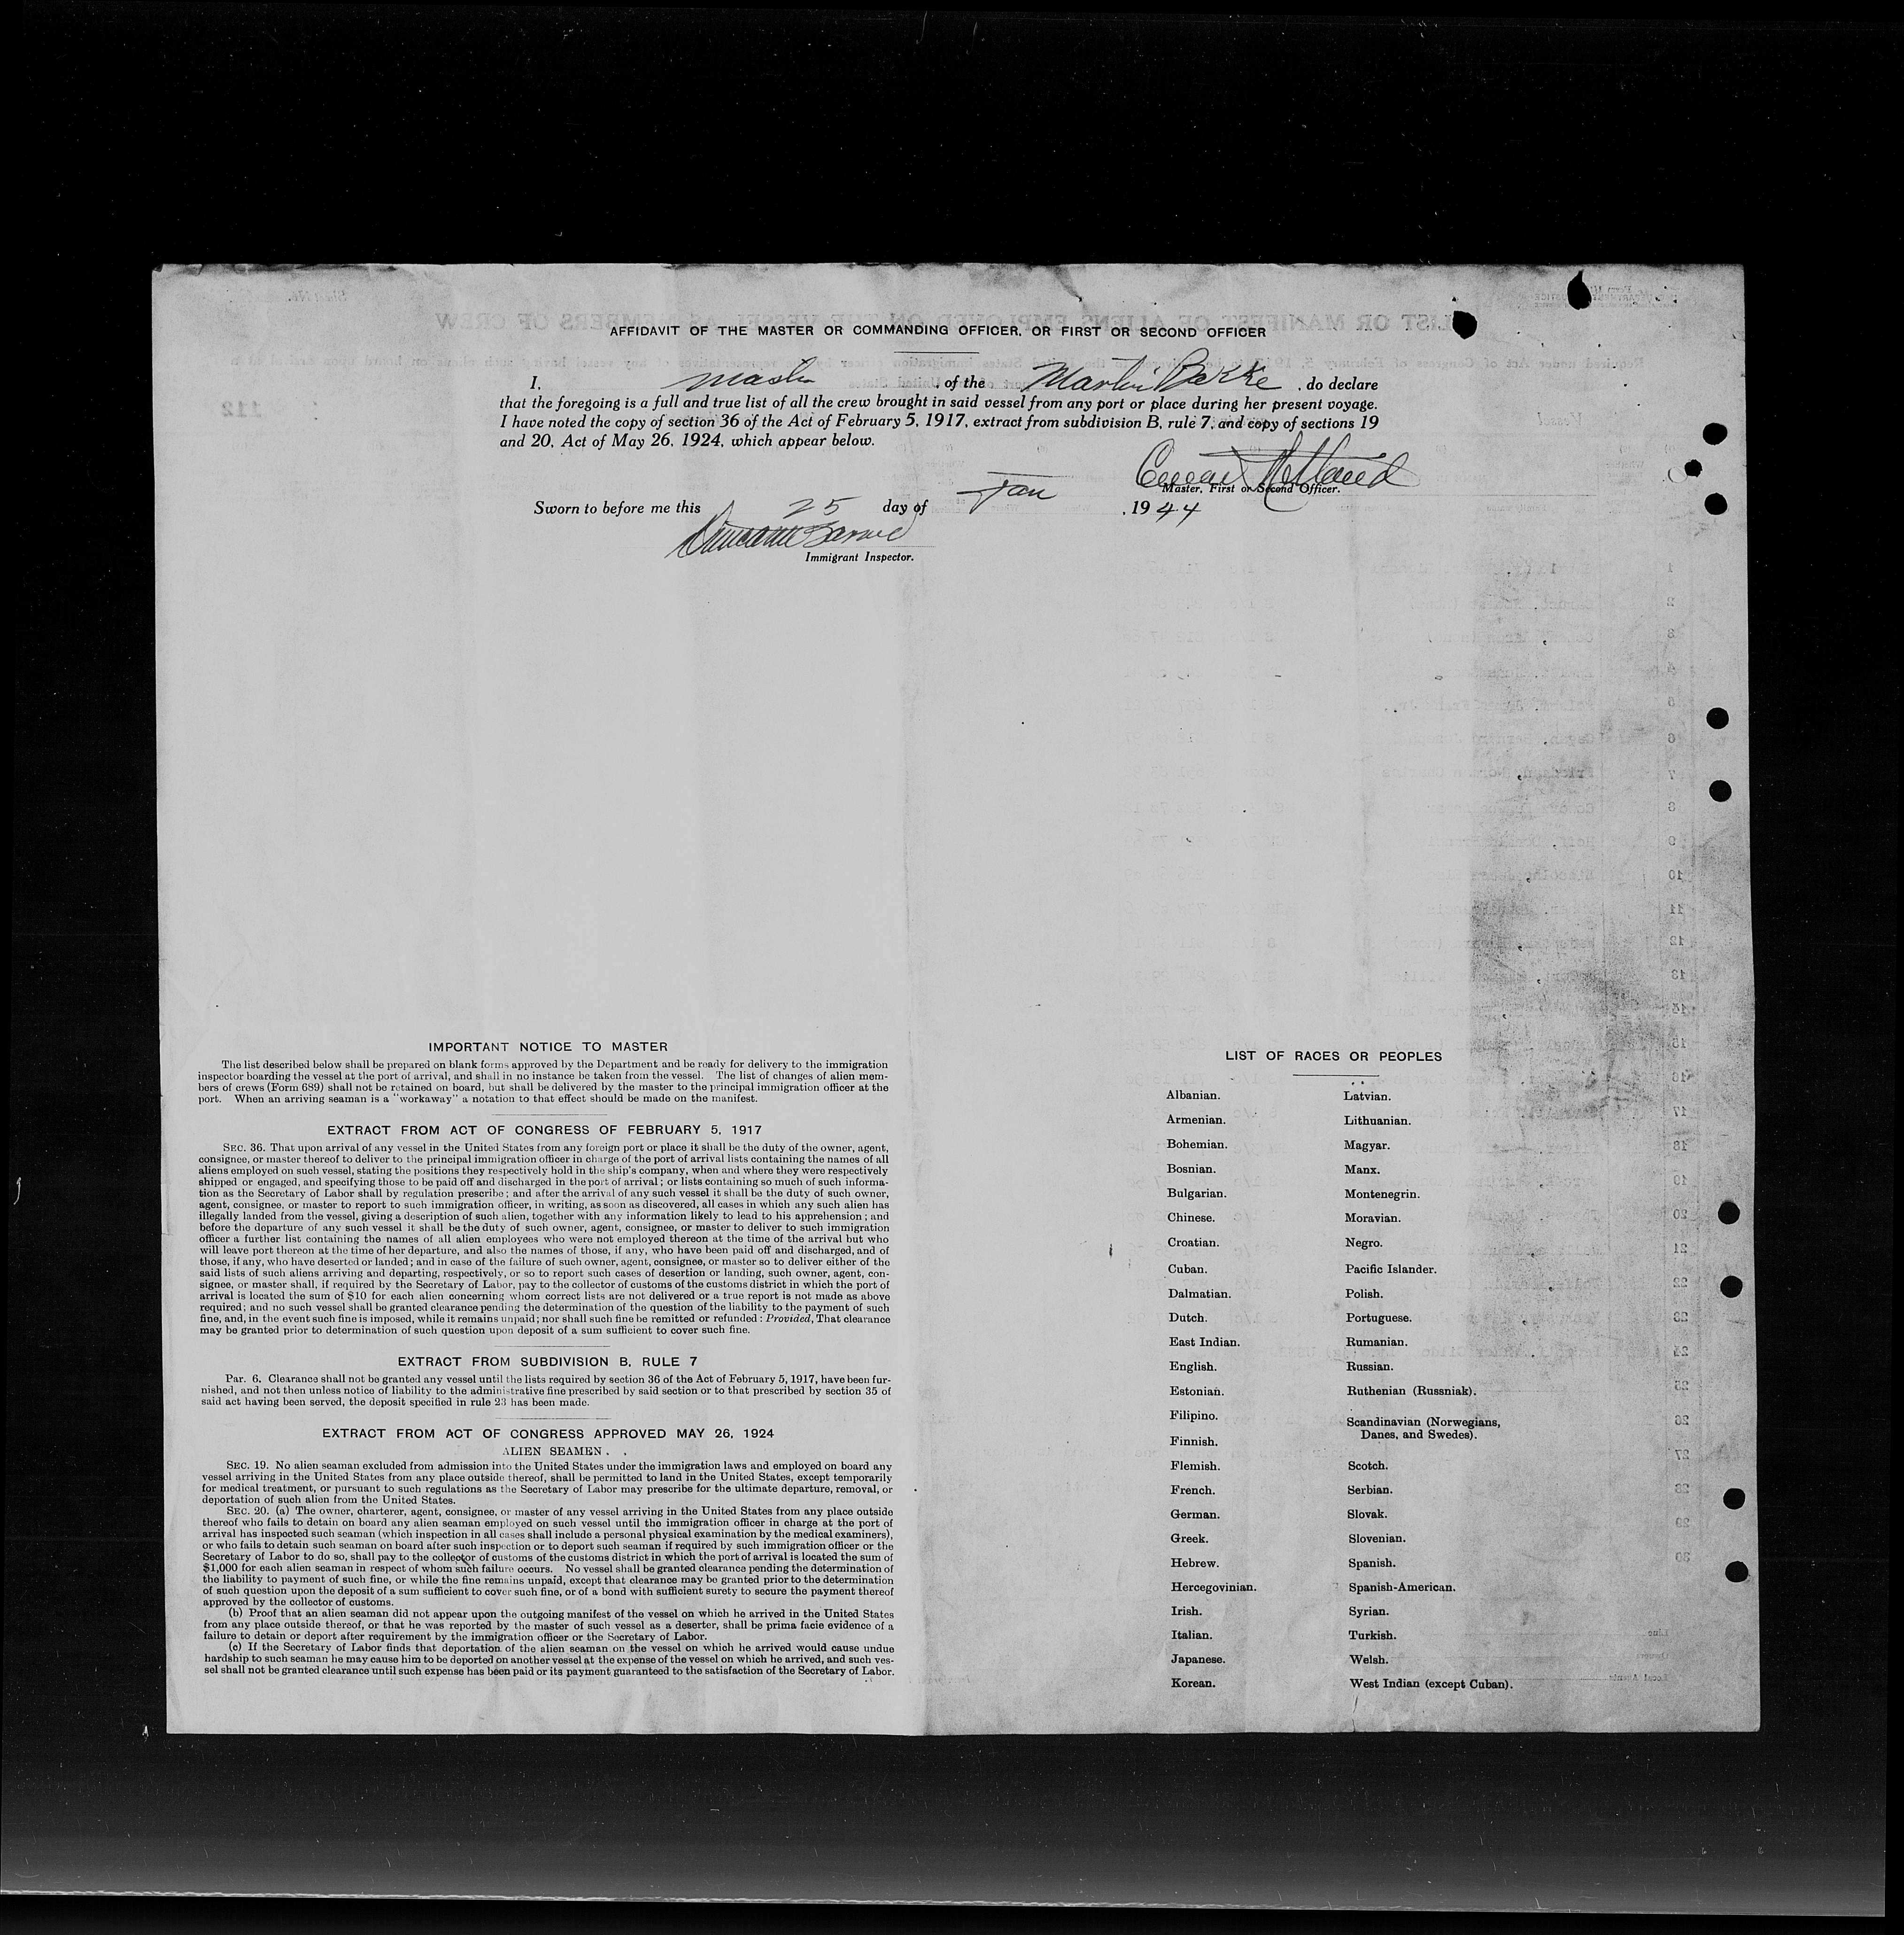 AFFIDAVIT OF THE MASTER OR COMMANDING OFFICER, OR FIRST OR SECOND OFFICER
I, Master, of the Martin Bakke, do declare
that the foregoing is a full and true list of all the crew brought in said vessel from any port or place during her present voyage.
I have noted the copy of section 36 of the Act of February 5, 1917, extract from subdivision B, rule 7, and copy of sections 19
and 20, Act of May 26, 1924, which appear below.
Master, First or Second Officer.
Sworn to before me this 25 day of Jan, 1944
Immigrant Inspector.
IMPORTANT NOTICE TO MASTER
The list described below shall be prepared on blank forms approved by the Department and be ready for delivery to the immigration
inspector boarding the vessel at the port of arrival, and shall in no instance be taken from the vessel. The list of changes of alien mem-
bers of crews (Form 689) shall not be retained on board, but shall be delivered by the master to the principal immigration officer at the
port. When an arriving seaman is a "workaway" a notation to that effect should be made on the manifest.
EXTRACT FROM ACT OF CONGRESS OF FEBRUARY 5, 1917
SEC. 36. That upon arrival of any vessel in the United States from any foreign port or place it shall be the duty of the owner, agent,
consignee, or master thereof to deliver to the principal immigration officer in charge of the port of arrival lists containing the names of all
aliens employed on such vessel, stating the positions they respectively hold in the ship's company, when and where they were respectively
shipped or engaged, and specifying those to be paid off and discharged in the port of arrival; or lists containing so much of such informa-
tion as the Secretary of Labor shall by regulation prescribe; and after the arrival of any such vessel it shall be the duty of such owner,
agent, consignee, or master to report to such immigration officer, in writing, as soon as discovered, all cases in which any such alien has
illegally landed from the vessel, giving a description of such alien, together with any information likely to lead to his apprehension; and
before the departure of any such vessel it shall be the duty of such owner, agent, consignee, or master to deliver to such immigration
officer a further list containing the names of all alien employees who were not employed thereon at the time of the arrival but who
will leave port thereon at the time of her departure, and also the names of those, if any, who have been paid off and discharged, and of
those, if any, who have deserted or landed; and in case of the failure of such owner, agent, consignee, or master so to deliver either of the
said lists of such aliens arriving and departing, respectively, or so to report such cases of desertion or landing, such owner, agent, con-
signee, or master shall, if required by the Secretary of Labor, pay to the collector of customs of the customs district in which the port of
arrival is located the sum of $10 for each alien concerning whom correct lists are not delivered or a true report is not made as above
required; and no such vessel shall be granted clearance pending the determination of the question of the liability to the payment of such
fine, and, in the event such fine is imposed, while it remains unpaid; nor shall such fine be remitted or refunded: Provided, That clearance
may be granted prior to determination of such question upon deposit of a sum sufficient to cover such fine.
EXTRACT FROM SUBDIVISION B, RULE 7
Par. 6. Clearance shall not be granted any vessel until the lists required by section 36 of the Act of February 5, 1917, have been fur-
nished, and not then unless notice of liability to the administrative fine prescribed by said section or to that prescribed by section 35 of
said act having been served, the deposit specified in rule 23 has been made.
EXTRACT FROM ACT OF CONGRESS APPROVED MAY 26, 1924
ALIEN SEAMEN
SEC. 19. No alien seaman excluded from admission into the United States under the immigration laws and employed on board any
vessel arriving in the United States from any place outside thereof, shall be permitted to land in the United States, except temporarily
for medical treatment, or pursuant to such regulations as the Secretary of Labor may prescribe for the ultimate departure, removal, or
deportation of such alien from the United States.
SEC. 20. (a) The owner, charterer, agent, consignee, or master of any vessel arriving in the United States from any place outside
thereof who fails to detain on board any alien seaman employed on such vessel until the immigration officer in charge at the port of
arrival has inspected such seaman (which inspection in all cases shall include a personal physical examination by the medical examiners),
or who fails to detain such seaman on board after such inspection or to deport such seaman if required by such immigration officer or the
Secretary of Labor to do so, shall pay to the collector of customs of the customs district in which the port of arrival is located the sum of
$1,000 for each alien seaman in respect of whom such failure occurs. No vessel shall be granted clearance pending the determination of
the liability to payment of such fine, or while the fine remains unpaid, except that clearance may be granted prior to the determination
of such question upon the deposit of a sum sufficient to cover such fine, or of a bond with sufficient surety to secure the payment thereof
approved by the collector of customs.
(b) Proof that an alien seaman did not appear upon the outgoing manifest of the vessel on which he arrived in the United States
from any place outside thereof, or that he was reported by the master of such vessel as a deserter, shall be prima facie evidence of a
failure to detain or deport after requirement by the immigration officer or the Secretary of Labor.
(c) If the Secretary of Labor finds that deportation of the alien seaman on the vessel on which he arrived would cause undue
hardship to such seaman he may cause him to be deported on another vessel at the expense of the vessel on which he arrived, and such ves-
sel shall not be granted clearance until such expense has been paid or its payment guaranteed to the satisfaction of the Secretary of Labor.
LIST OF RACES OR PEOPLES
Albanian.
Armenian.
Bohemian.
Bosnian.
Bulgarian.
Chinese.
Croatian.
Cuban.
Dalmatian.
Dutch.
East Indian.
English.
Estonian.
Filipino.
Finnish.
Flemish.
French.
German.
Greek.
Hebrew.
Hercegovinian.
Irish.
Italian.
Japanese.
Korean.
Latvian.
Lithuanian.
Magyar.
Manx.
Montenegrin.
Moravian.
Negro.
Pacific Islander.
Polish.
Portuguese.
Rumanian.
Russian.
Ruthenian (Russniak).
Scandinavian (Norwegians,
Danes, and Swedes).
Scotch.
Serbian.
Slovak.
Slovenian.
Spanish.
Spanish-American.
Syrian.
Turkish.
Welsh.
West Indian (except Cuban).